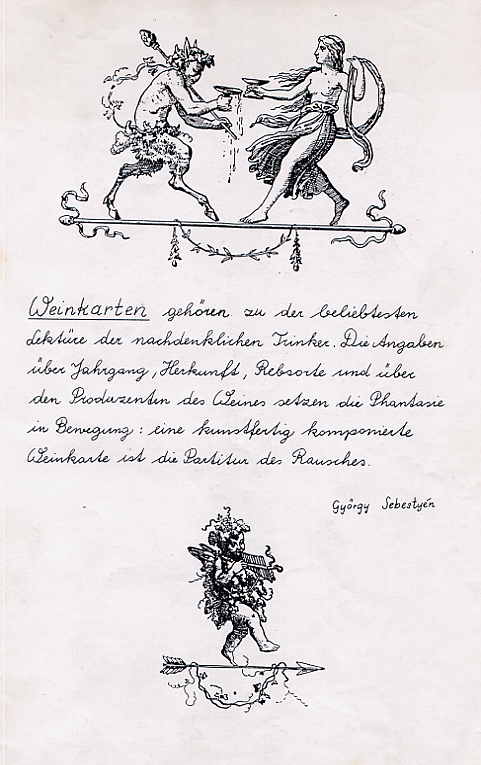 Weinkarten gehören zu der beliebtesten
Lektüre der nachdenklichen Trinker. Die Angaben
über Jahrgang, Herkunft, Rebsorte und über
den Produzenten des Weines setzen die Phantasie
in Bewegung: eine kunstfertig komponierte
Weinkarte ist die Partitur des Rausches.
György Sebestyén